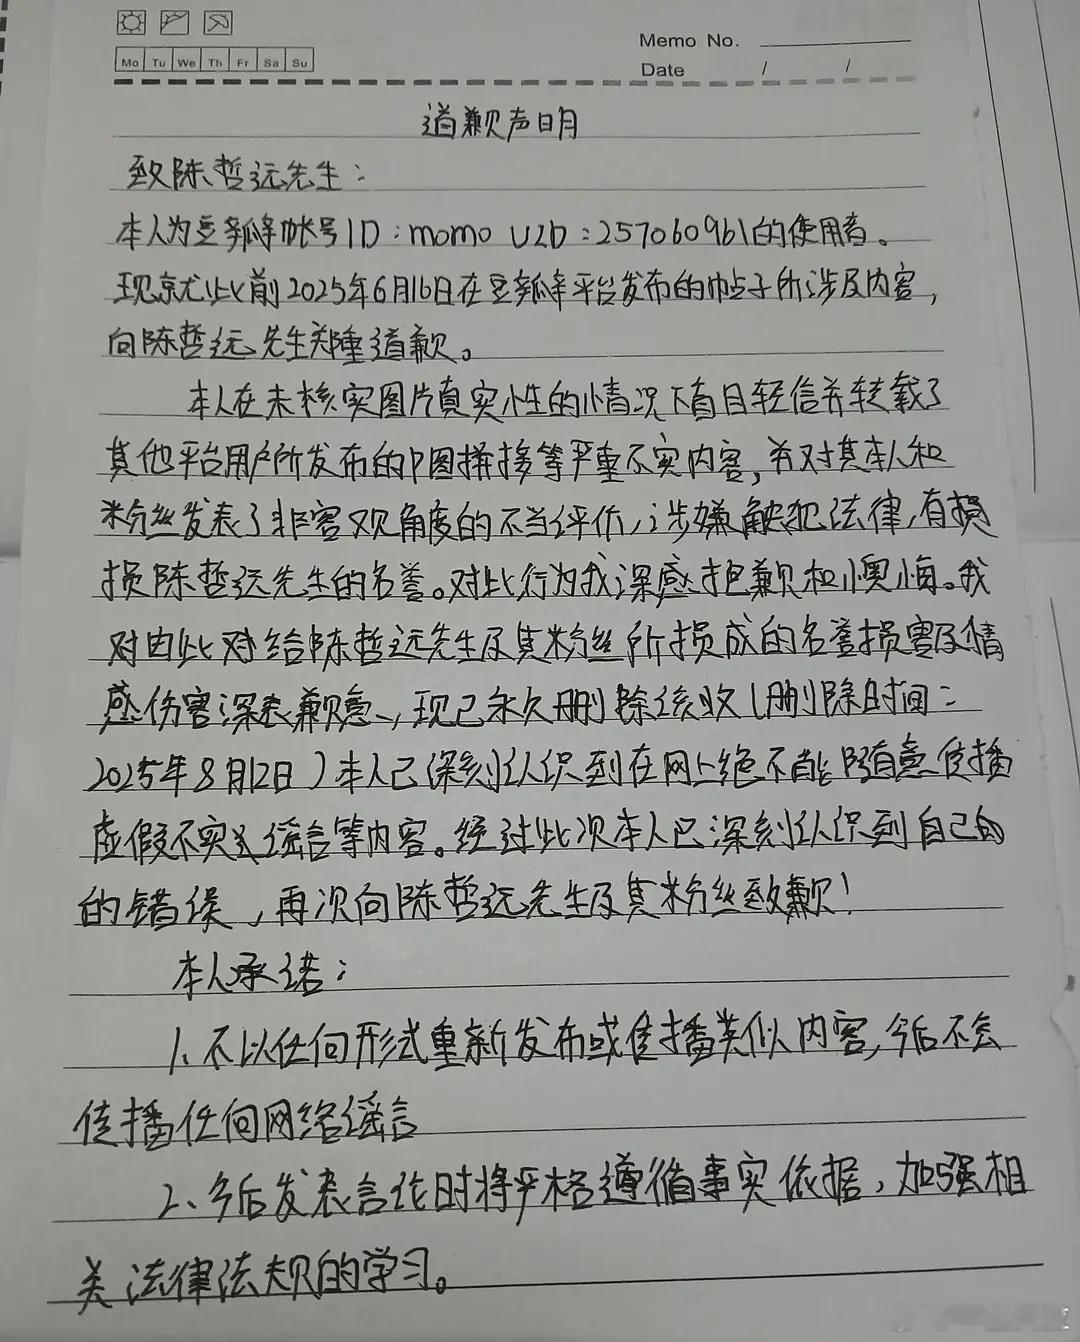 Memo No.
Mo Tu We Th Fr Sa Su
Date / /
道歉声明
致陈哲远先生：
本人为豆瓣帐号ID：momo UID：257060961的使用者。
现就此前2025年6月16日在豆瓣平台发布的帖子所涉及内容，
向陈哲远先生郑重道歉。
本人在未核实图片真实性的情况下盲目轻信并转载了
其他平台用户所发布的P图拼接等严重不实内容，并对其本人和
粉丝发表了非客观角度的不当评价，涉嫌触犯法律，有损
损陈哲远先生的名誉。对此行为我深感抱歉和懊悔。我
对由此对给陈哲远先生及其粉丝所损成的名誉损害及情
感伤害深表歉意，现已永久删除该收（删除时间：
2025年8月12日）本人已深刻认识到在网上绝不能随意传播
虚假不实谣言等内容。经过此次本人已深刻认识到自己的
的错误，再次向陈哲远先生及其粉丝致歉！
本人承诺：
1、不以任何形式重新发布或传播类似内容，今后不会
传播任何网络谣言
2、今后发表言论时将严格遵循事实依据，加强相
关法律法规的学习。